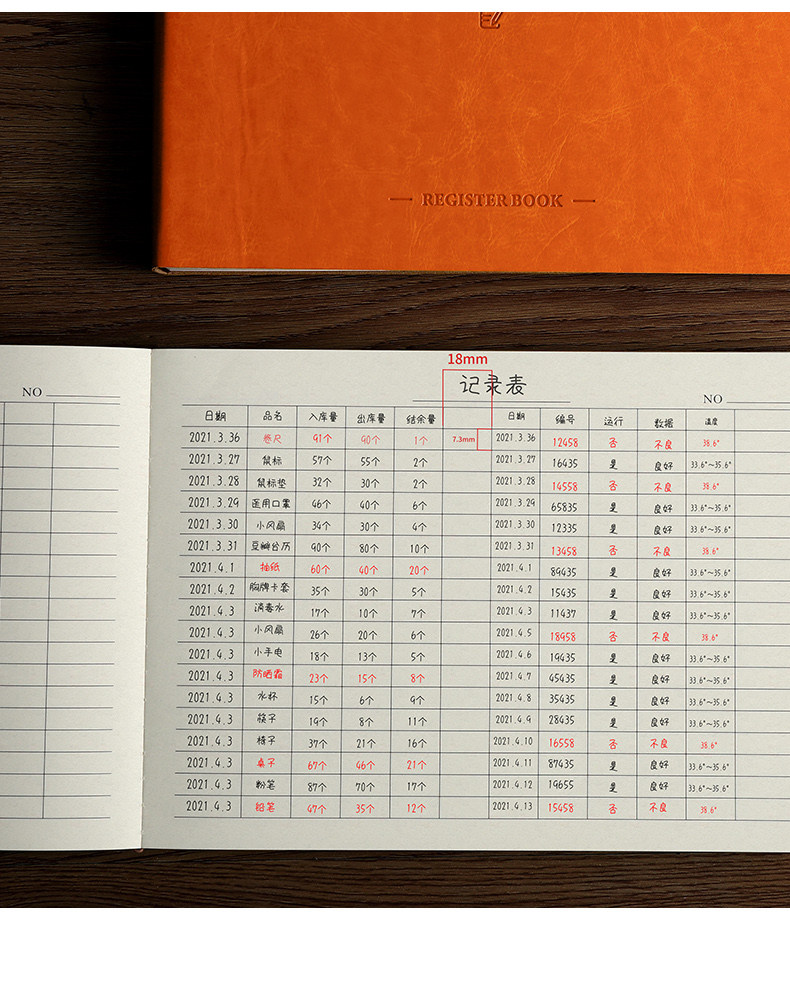 REGISTER BOOK
18mm
NO
记录表
NO
日期 品名 入库量 出库量 结余量 日期 编号 运行 数据 温度
2021.3.36 卷尺 91个 90个 1个 7.3mm 2021.3.36 12458 否 不良 38.6°
2021.3.27 鼠标 57个 55个 2个 2021.3.27 16435 是 良好 33.6°~35.6°
2021.3.28 鼠标垫 32个 30个 2个 2021.3.28 14558 否 不良 38.6°
2021.3.29 医用口罩 46个 40个 6个 2021.3.29 65835 是 良好 33.6°~35.6°
2021.3.30 小风扇 34个 30个 4个 2021.3.30 12335 是 良好 33.6°~35.6°
2021.3.31 豆瓣台历 90个 80个 10个 2021.3.31 13458 否 不良 38.6°
2021.4.1 抽纸 60个 40个 20个 2021.4.1 89435 是 良好 33.6°~35.6°
2021.4.2 胸牌卡套 35个 30个 5个 2021.4.2 15435 是 良好 33.6°~35.6°
2021.4.3 消毒水 17个 10个 7个 2021.4.3 11437 是 良好 33.6°~35.6°
2021.4.3 小风扇 26个 20个 6个 2021.4.5 18958 否 不良 38.6°
2021.4.3 小手电 18个 13个 5个 2021.4.6 19435 是 良好 33.6°~35.6°
2021.4.3 防晒霜 23个 15个 8个 2021.4.7 45435 是 良好 33.6°~35.6°
2021.4.3 水杯 15个 6个 9个 2021.4.8 35435 是 良好 33.6°~35.6°
2021.4.3 筷子 19个 8个 11个 2021.4.9 28435 是 良好 33.6°~35.6°
2021.4.3 椅子 37个 21个 16个 2021.4.10 16558 否 不良 38.6°
2021.4.3 桌子 67个 46个 21个 2021.4.11 87435 是 良好 33.6°~35.6°
2021.4.3 粉笔 87个 70个 17个 2021.4.12 19655 是 良好 33.6°~35.6°
2021.4.3 铅笔 47个 35个 12个 2021.4.13 15458 否 不良 38.6°